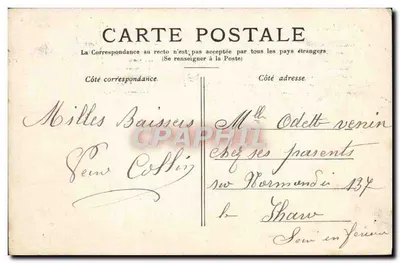 CARTE POSTALE
La Correspondance au recto n'est pas acceptée par tous les pays étrangers
(Se renseigner à la Poste)
Côté correspondance
Côté adresse
Milles Baisers
Collin
Mlle Odett venin
chez ses parents
rue Normandie 137
le